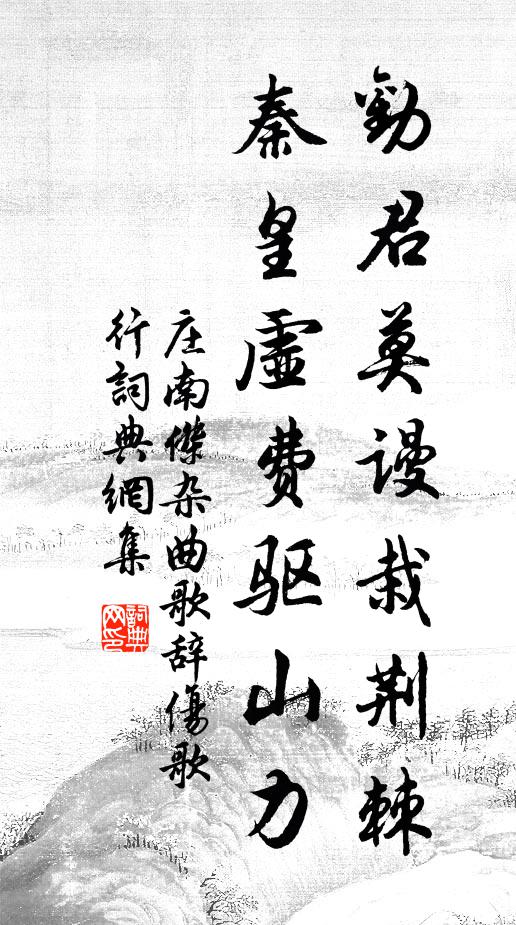 勸君莫謾栽荆棘
秦皇虛費驱山力
庄南傑杂曲歌辞傷歌
行詞典網集
詞典
网印